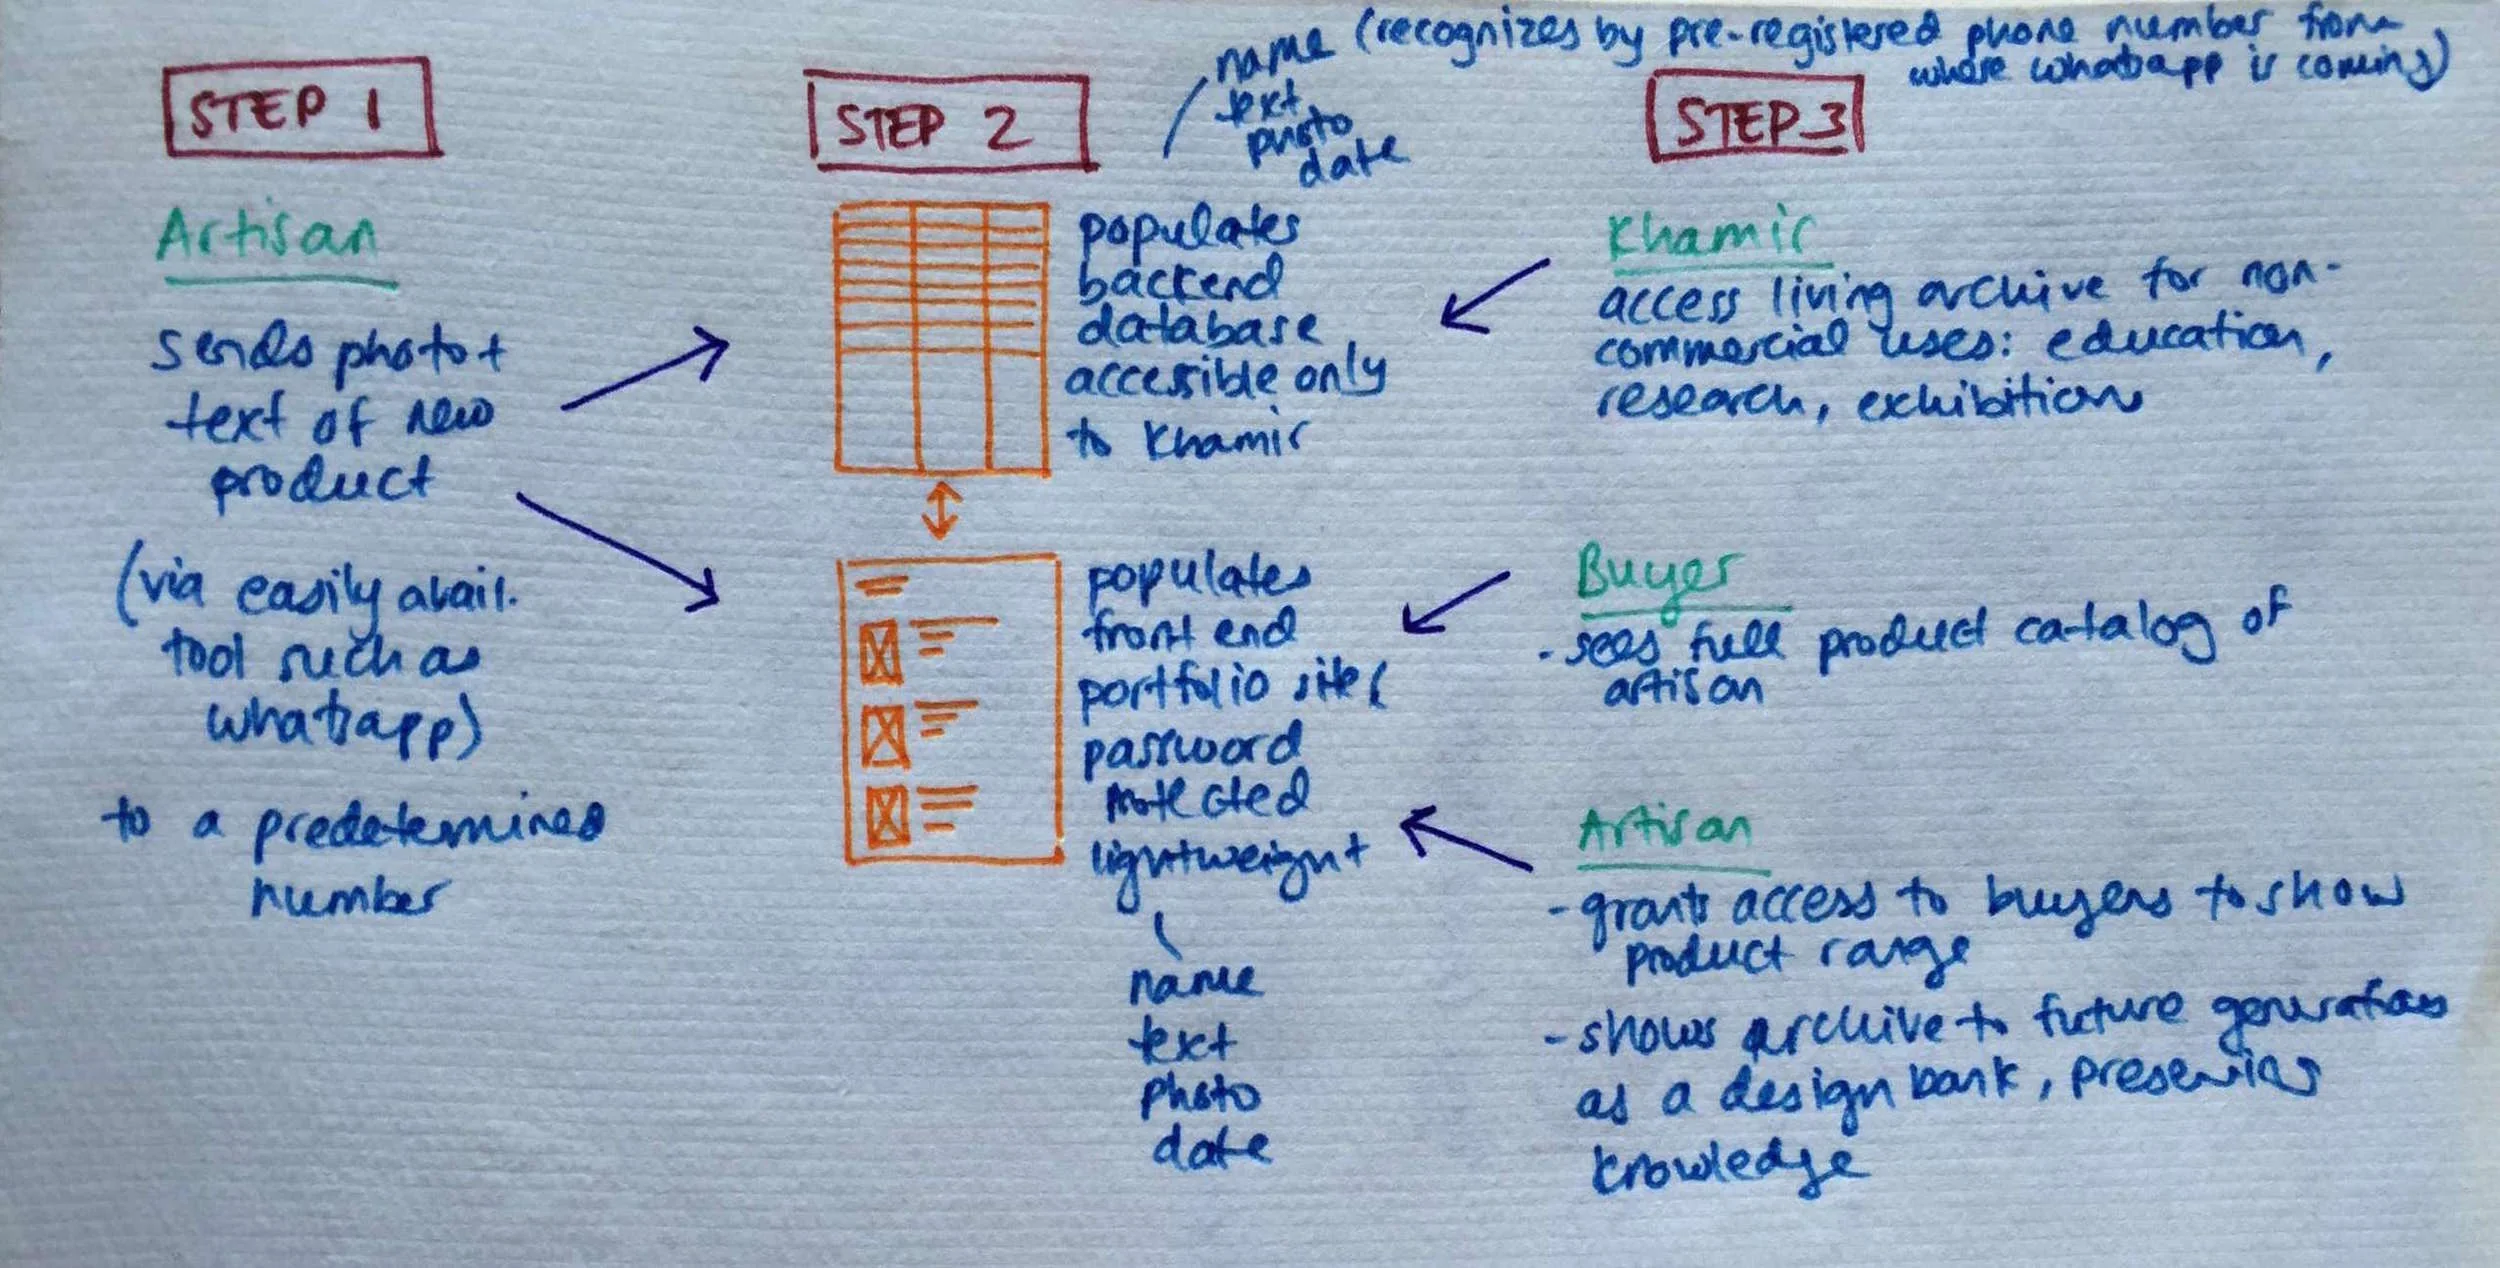 STEP 1
Artisan
sends photo +
text of new
product
(via easily avail.
tool such as
whatsapp)
to a predetermined
number
STEP 2
name (recognizes by pre-registered phone number from
where whatsapp is coming)
text
photo
date
populates
backend
database
accessible only
to Khamir
populates
front end
portfolio site (
password
protected
lightweight
name
text
photo
date
STEP 3
Khamir
access living archive for non-
commercial uses: education,
research, exhibitions
Buyer
- sees full product catalog of
artisan
Artisan
- grants access to buyers to show
product range
- shows archive to future generations
as a design bank, preserving
knowledge